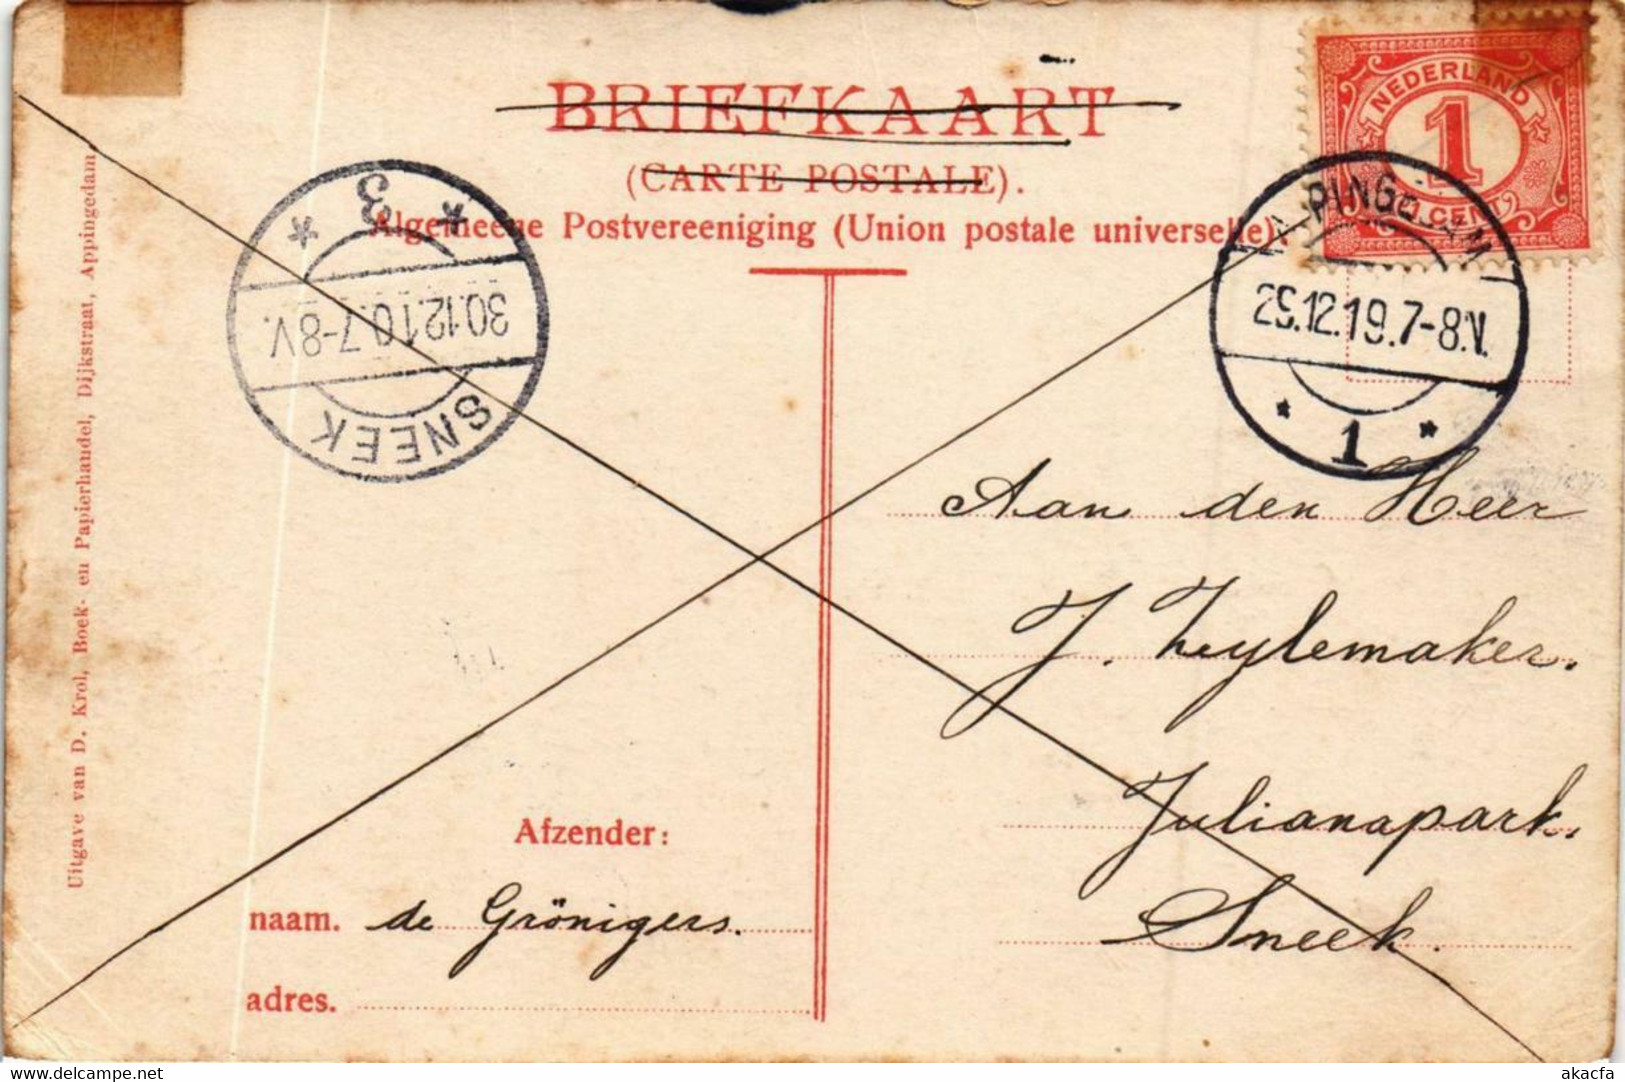 BRIEFKAART
(CARTE POSTALE).
Algemeene Postvereeniging (Union postale universelle).
NEDERLAND
1
1 CENT
PINGEDAM
12.19.7-8.V.
1
3
30.12.10.7-8V.
SNEEK
Aan den Heer
J. Zeylemaker.
Julianapark.
Sneek.
Afzender:
naam. de Grönigers.
adres.
Uitgave van D. Krol, Boek- en Papierhandel, Dijkstraat, Appingedam
www.delcampe.net
akacfa